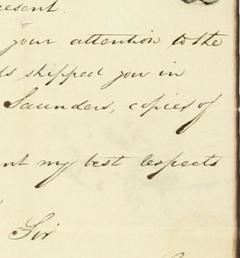 resent.
your attention to the
ds shipped you in
Saunders, copies of
nt my best respects
Sir